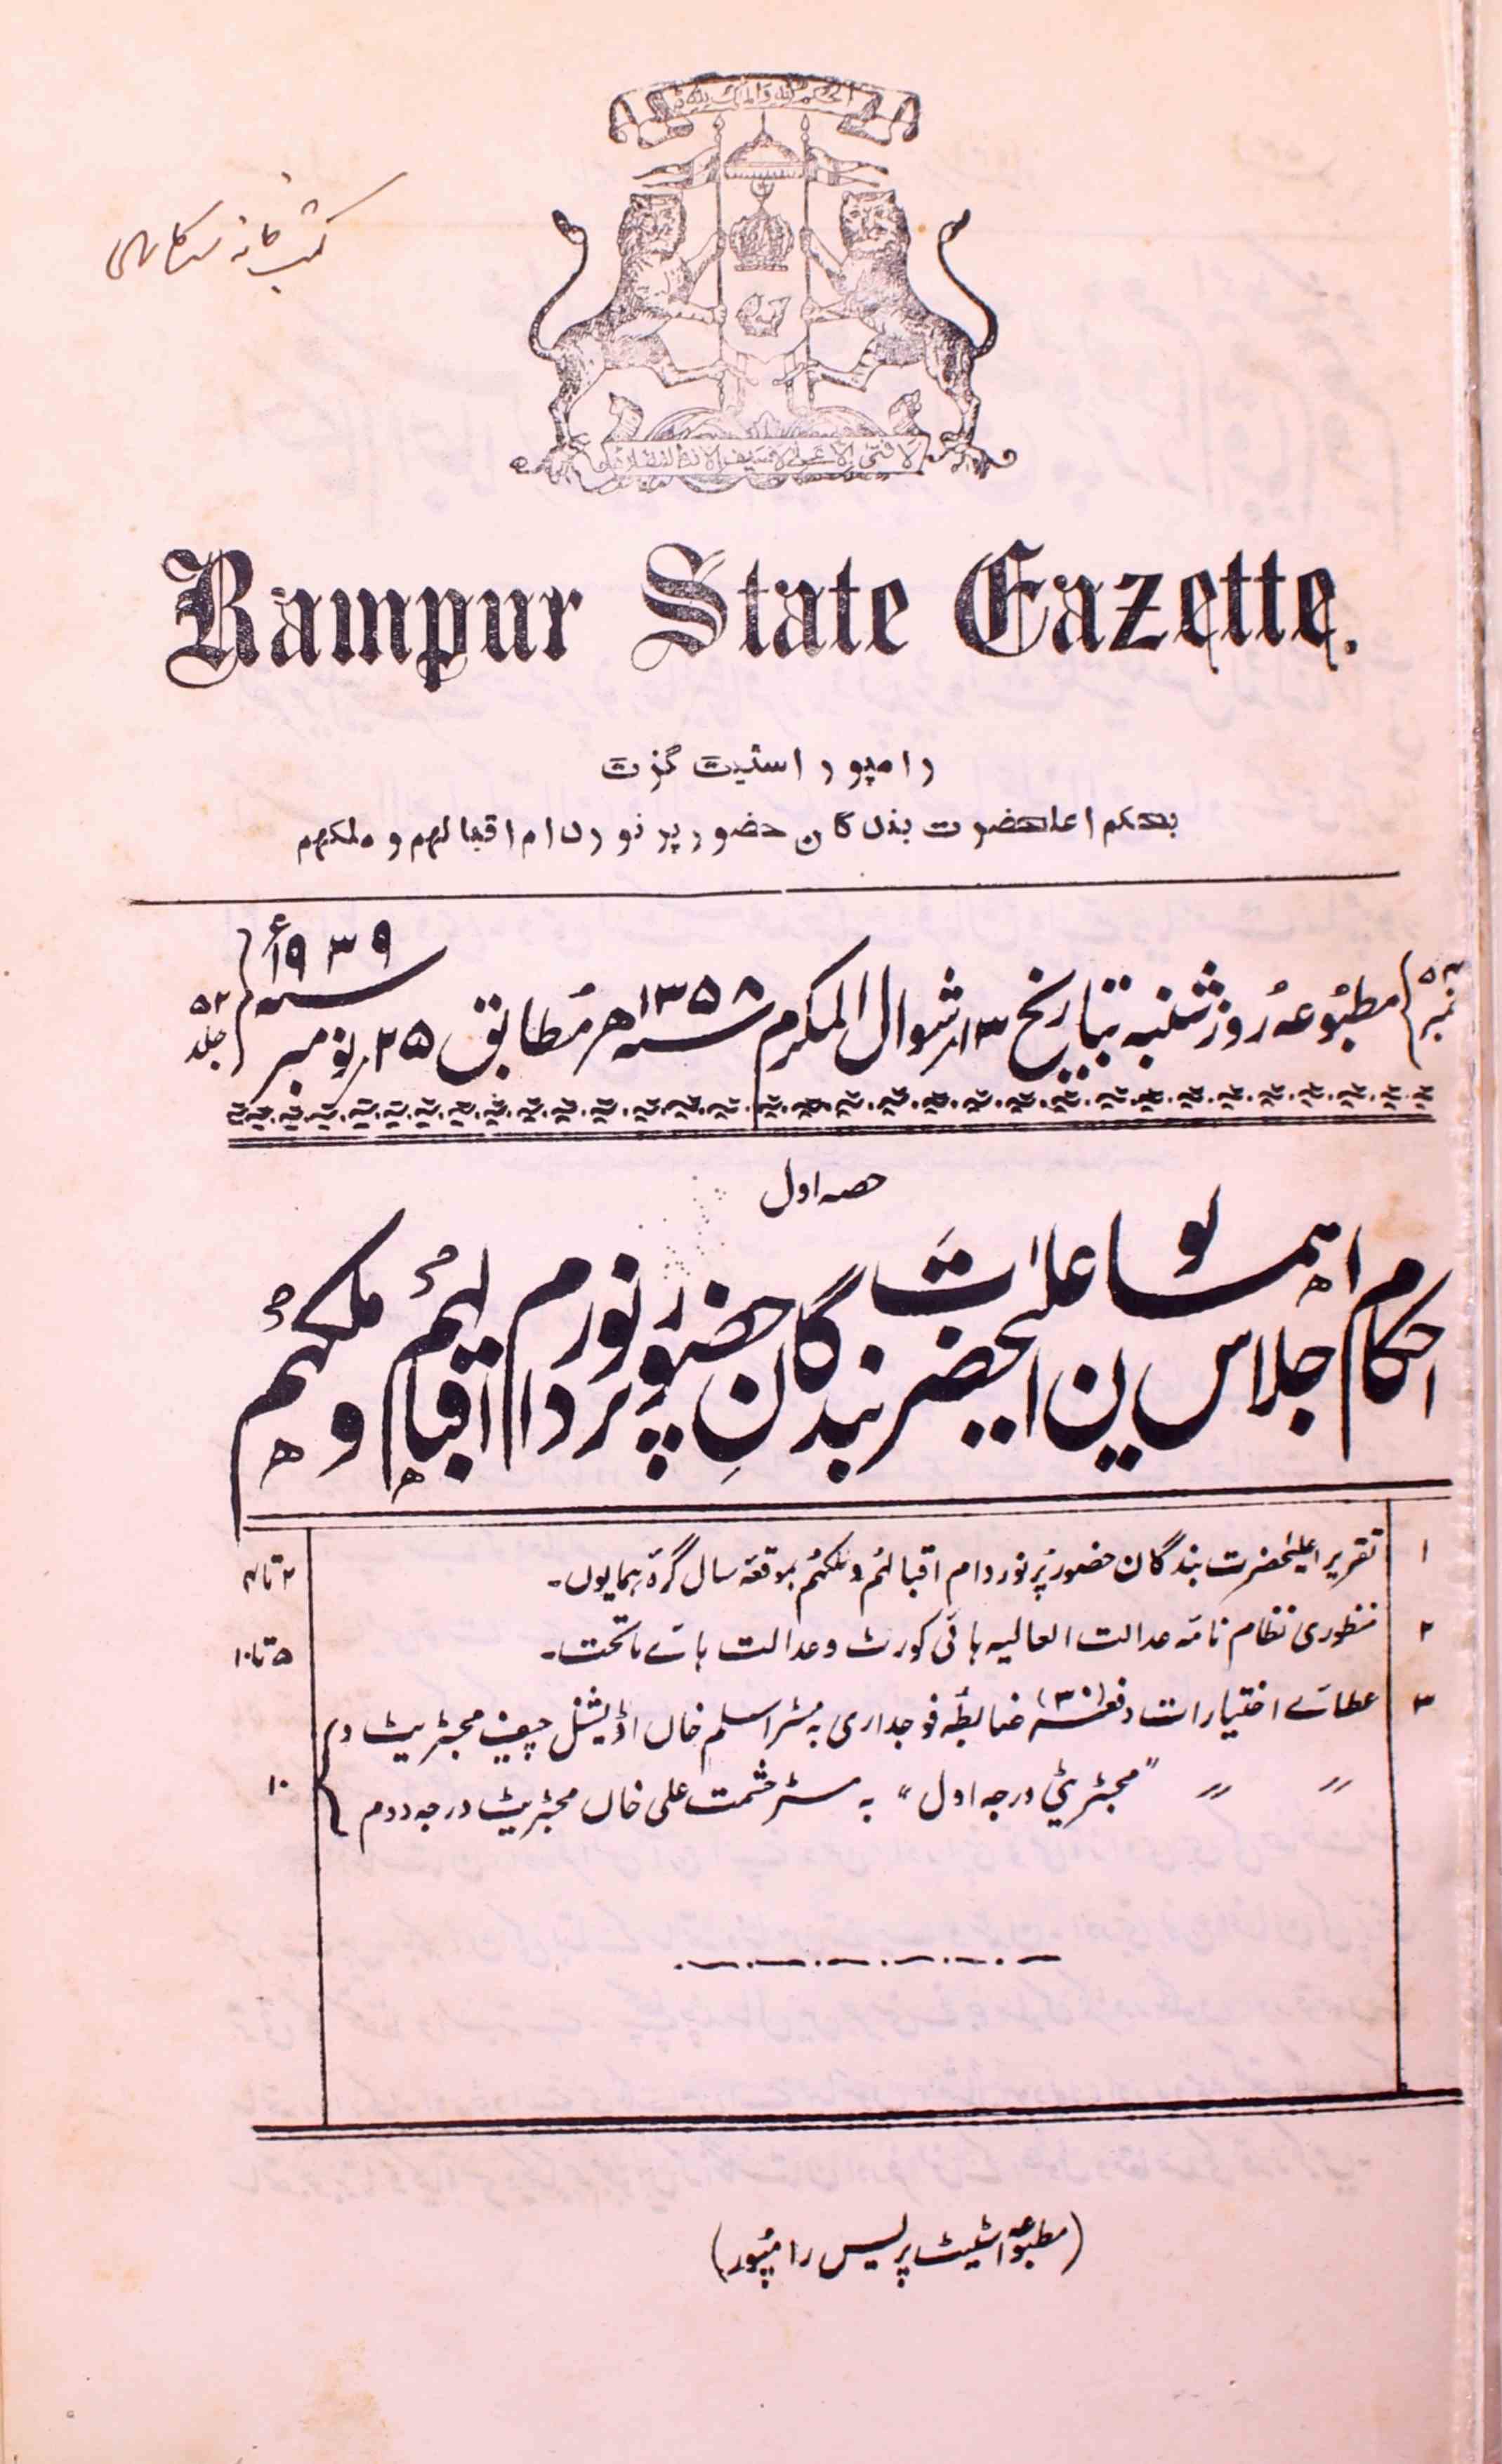 الحکم للہ والملک للہ
کتب خانہ سرکاری
لا فتیٰ الا علی لا سیف الا ذوالفقار
Rampur State Gazette.
رامپور اسٹیٹ گزٹ
بحکم اعلحضرت بندگان حضور پر نور دام اقبالهم و ملکهم
نمبر ۵۲ مطبُوعہ روز شنبہ بتاریخ ۱۳؍ شوال المکرم سنہ ۱۳۵۸ھ مُطابق ۲۵؍ نومبر سنہ ۱۹۳۹ء جلد ۵۲
حصہ اول
احکام اجلاس ہمایوں اعلیٰحضرت بندگانِ حضُور پُر نور دام اقبالہُم و ملکہُم
۱ تقریر اعلیٰحضرت بندگان حضور پُر نور دام اقبالہُم و ملکہُم بموقعہ سال گرہ ہمایوں۔ ۲ تا ۴
۲ منظوری نظام نامہ عدالت العالیہ ہائی کورٹ و عدالت ہائے ماتحت۔ ۵ تا ۱۰
۳ عطائے اختیارات دفعہ (۳۰) ضابطہ فوجداری بہ مسٹر اسلم خاں اڈیشنل چیف مجسٹریٹ و
〃 〃 "مجسٹریٹی درجہ اول" بہ مسٹر حشمت علی خاں مجسٹریٹ درجہ دوم ۱۰
(مطبوعہ اسٹیٹ پریس رامپُور)